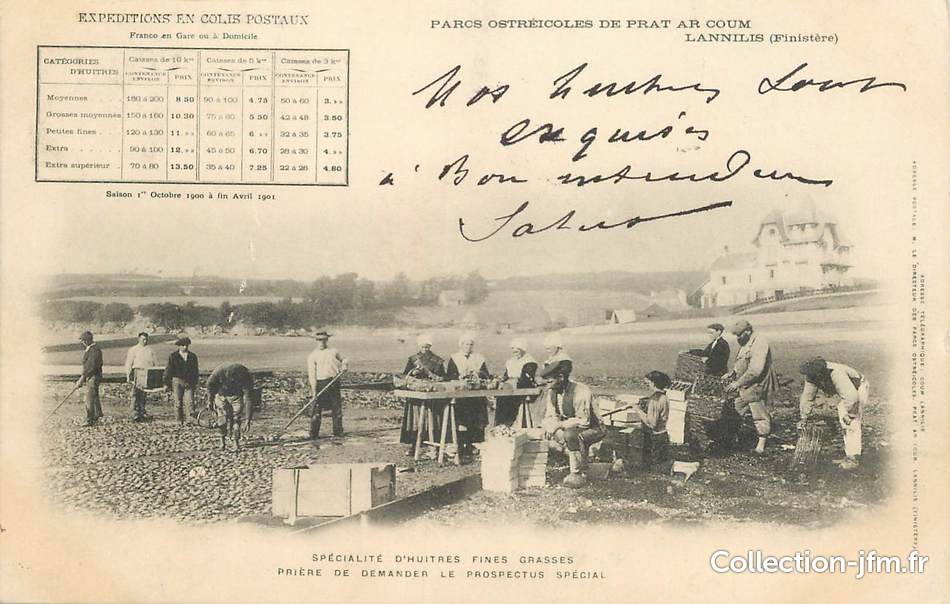 EXPEDITIONS EN COLIS POSTAUX
Franco en Gare ou à Domicile
CATÉGORIES D'HUITRES | Caisses de 10 kos | Caisses de 5 kos | Caisses de 3 kos
CONTENANCE ENVIRON | PRIX | CONTENANCE ENVIRON | PRIX | CONTENANCE ENVIRON | PRIX
Moyennes . . . . 180 à 200 8.50 90 à 100 4.75 50 à 60 3. » »
Grosses moyennes 150 à 160 10.30 75 à 80 5.50 42 à 48 3.50
Petites fines . . 120 à 130 11. » » 60 à 65 6. » » 32 à 35 3.75
Extra . . . . . 90 à 100 12. » » 45 à 50 6.70 28 à 30 4. » »
Extra supérieur . 70 à 80 13.50 35 à 40 7.25 22 à 26 4.80
Saison 1er Octobre 1900 à fin Avril 1901
PARCS OSTRÉICOLES DE PRAT AR COUM
LANNILIS (Finistère)
Nos huitres sont
exquises
à Bon entendeur
Salut
ADRESSE POSTALE: M. LE DIRECTEUR DES PARCS OSTRÉICOLES, PRAT AR COUM, LANNILIS (FINISTÈRE)
ADRESSE TÉLÉGRAPHIQUE: COUM LANNILIS
SPÉCIALITÉ D'HUITRES FINES GRASSES
PRIÈRE DE DEMANDER LE PROSPECTUS SPÉCIAL
Collection-jfm.fr